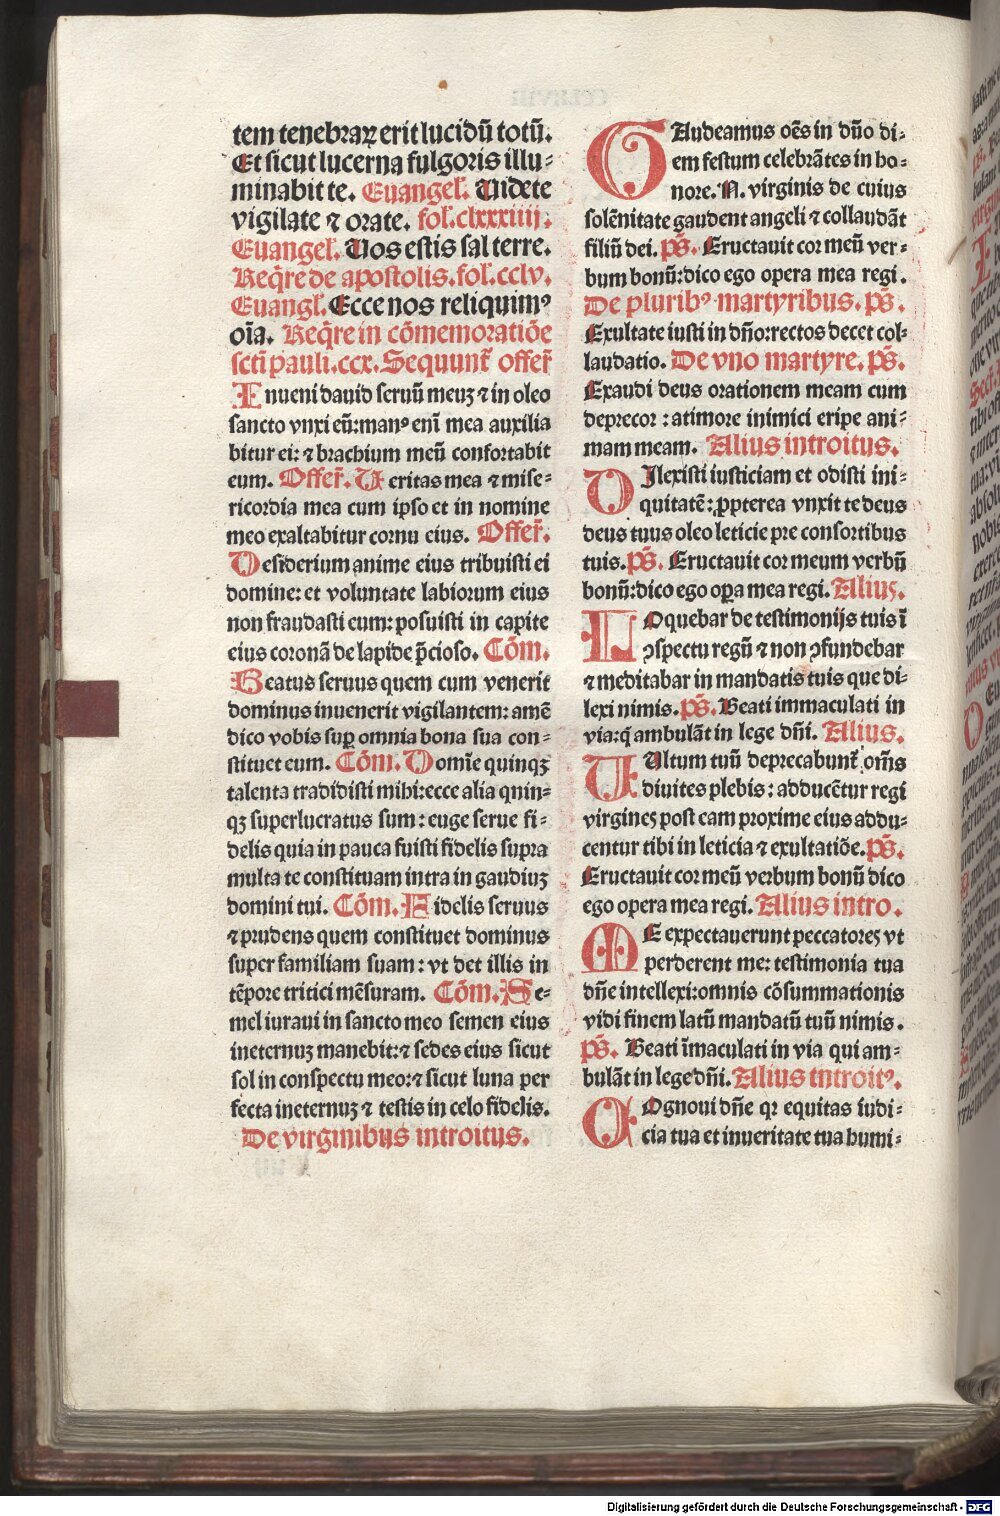 tem tenebraꝝ erit lucidū totū.
Et sicut lucerna fulgoris illu⸗
minabit te. Euangel̄. Uidete
vigilate ⁊ orate. fol̄.clxxxiiij.
Euangel̄. Uos estis sal terre.
Req̄re de apostolis.fol̄.cclv.
Euangl̄. Ecce nos reliquimꝰ
oīa. Req̄re in cōmemoratiōe
scti pauli.ccx. Sequunt̄ offer̄
Inueni dauid seruū meuʒ ⁊ in oleo
sancto vnxi eū:manꝰ enī mea auxilia
bitur ei: ⁊ brachium meū confortabit
eum. Offer̄. Ueritas mea ⁊ mise⸗
ricordia mea cum ipso et in nomine
meo exaltabitur cornu eius. Offer̄.
Desiderium anime eius tribuisti ei
domine: et voluntate labiorum eius
non fraudasti eum: posuisti in capite
eius coronā de lapide p̄cioso. Cōm.
Beatus seruus quem cum venerit
dominus inuenerit vigilantem: amē
dico vobis suꝑ omnia bona sua con⸗
stituet eum. Cōm. Domīe quinqʒ
talenta tradidisti mihi:ecce alia quin⸗
qʒ superlucratus sum: euge serue fi⸗
delis quia in pauca fuisti fidelis supra
multa te constituam intra in gaudiuʒ
domini tui. Cōm. Fidelis seruus
⁊ prudens quem constituet dominus
super familiam suam: vt det illis in
tēpore tritici mēsuram. Cōm. Se⸗
mel iuraui in sancto meo semen eius
ineternuʒ manebit:⁊ sedes eius sicut
sol in conspectu meo:⁊ sicut luna per
fecta ineternuʒ ⁊ testis in celo fidelis.
De virginibus introitus.
GAudeamus oēs in dn̄o di⸗
em festum celebrātes in ho⸗
nore. N. virginis de cuius
solēnitate gaudent angeli ⁊ collaudāt
filiū dei. ps̄. Eructauit cor meū ver⸗
bum bonū:dico ego opera mea regi.
De pluribꝰ martyribus. ps̄.
Exultate iusti in dn̄o:rectos decet col⸗
laudatio. De vno martyre. ps̄.
Exaudi deus orationem meam cum
deprecor: atimore inimici eripe ani⸗
mam meam. Alius introitus.
DIlexisti iusticiam et odisti ini⸗
quitatē: ꝓpterea vnxit te deus
deus tuus oleo leticie pre consortibus
tuis. ps̄. Eructauit cor meum verbū
bonū:dico ego oꝑa mea regi. Alius.
LOquebar de testimonijs tuis ī
ꝯspectu regū ⁊ non ꝯfundebar
⁊ meditabar in mandatis tuis que di⸗
lexi nimis. ps̄. Beati immaculati in
via:q̄ ambulāt in lege dn̄i. Alius.
UUltum tuū deprecabunt̄ om̄s
diuites plebis: adducētur regi
virgines post eam proxime eius addu⸗
centur tibi in leticia ⁊ exultatiōe. ps̄.
Eructauit cor meū verbum bonū dico
ego opera mea regi. Alius intro.
ME expectauerunt peccatores vt
perderent me: testimonia tua
dn̄e intellexi:omnis cōsummationis
vidi finem latū mandatū tuū nimis.
ps̄. Beati īmaculati in via qui am⸗
bulāt in lege dn̄i. Alius introitꝰ.
COgnoui dn̄e qꝛ equitas iudi⸗
cia tua et inueritate tua humi⸗
Digitalisierung gefördert durch die Deutsche Forschungsgemeinschaft - DFG